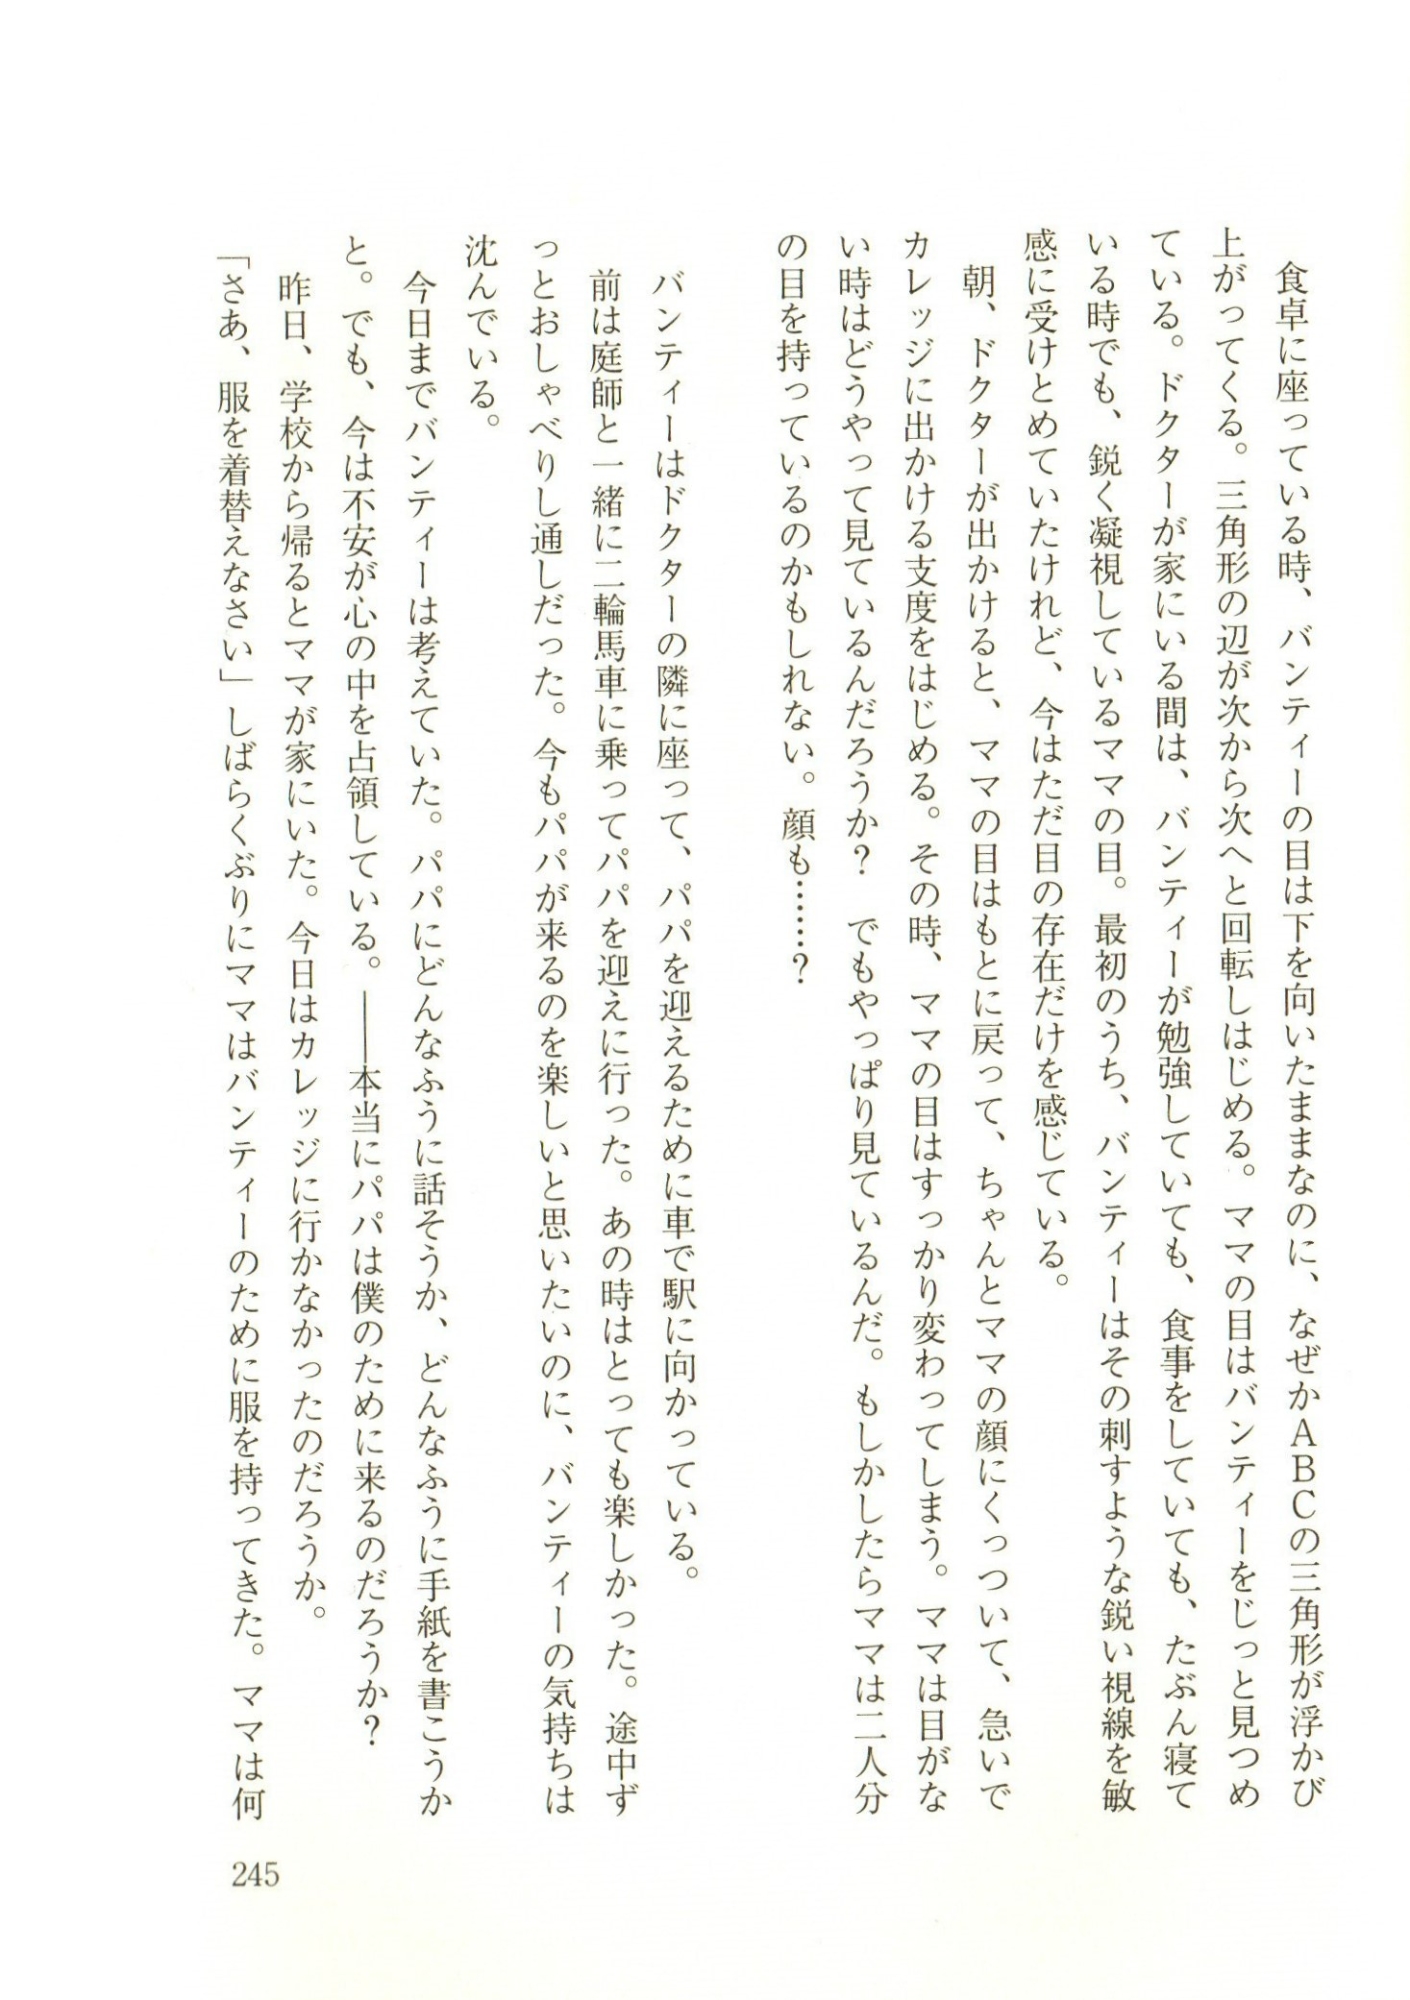 食卓に座っている時、バンティーの目は下を向いたままなのに、なぜかＡＢＣの三角形が浮かび
上がってくる。三角形の辺が次から次へと回転しはじめる。ママの目はバンティーをじっと見つめ
ている。ドクターが家にいる間は、バンティーが勉強していても、食事をしていても、たぶん寝て
いる時でも、鋭く凝視しているママの目。最初のうち、バンティーはその刺すような鋭い視線を敏
感に受けとめていたけれど、今はただ目の存在だけを感じている。
　朝、ドクターが出かけると、ママの目はもとに戻って、ちゃんとママの顔にくっついて、急いで
カレッジに出かける支度をはじめる。その時、ママの目はすっかり変わってしまう。ママは目がな
い時はどうやって見ているんだろうか？　でもやっぱり見ているんだ。もしかしたらママは二人分
の目を持っているのかもしれない。顔も……？
　バンティーはドクターの隣に座って、パパを迎えるために車で駅に向かっている。
　前は庭師と一緒に二輪馬車に乗ってパパを迎えに行った。あの時はとっても楽しかった。途中ず
っとおしゃべりし通しだった。今もパパが来るのを楽しいと思いたいのに、バンティーの気持ちは
沈んでいる。
　今日までバンティーは考えていた。パパにどんなふうに話そうか、どんなふうに手紙を書こうか
と。でも、今は不安が心の中を占領している。――本当にパパは僕のために来るのだろうか？
　昨日、学校から帰るとママが家にいた。今日はカレッジに行かなかったのだろうか。
「さあ、服を着替えなさい」しばらくぶりにママはバンティーのために服を持ってきた。ママは何
245